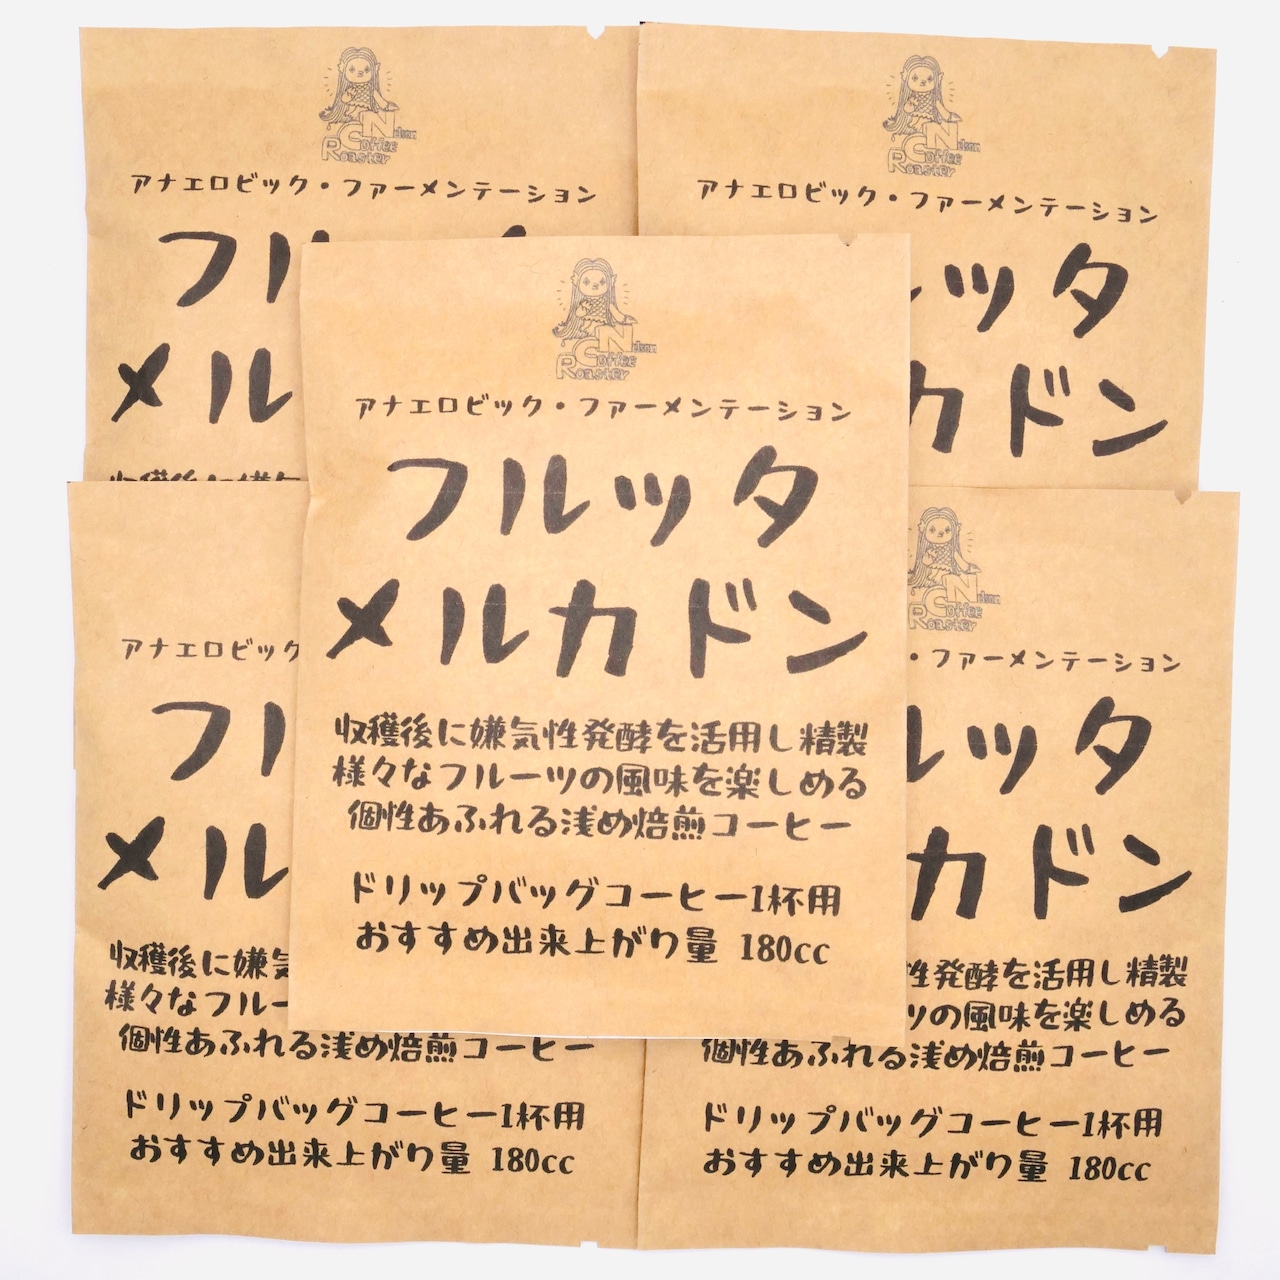 Nelson
Coffee
Roaster
アナエロビック・ファーメンテーション
フル
メル
収穫後に嫌気
Nelson
Coffee
Roaster
アナエロビック・ファーメンテーション
ッタ
カドン
Nelson
Coffee
Roaster
アナエロビック・ファーメンテーション
フルッタ
メルカドン
収穫後に嫌気性発酵を活用し精製
様々なフルーツの風味を楽しめる
個性あふれる浅め焙煎コーヒー
ドリップバッグコーヒー1杯用
おすすめ出来上がり量 180cc
アナエロビック
フル
メル
収穫後に嫌気
様々なフルー
個性あふれる浅め焙煎コーヒー
ドリップバッグコーヒー1杯用
おすすめ出来上がり量 180cc
Nelson
Coffee
Roaster
・ファーメンテーション
ルッタ
カドン
性発酵を活用し精製
ツの風味を楽しめる
個性あふれる浅め焙煎コーヒー
ドリップバッグコーヒー1杯用
おすすめ出来上がり量 180cc